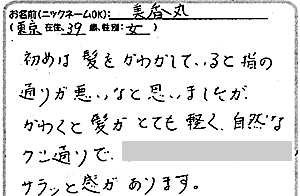 お名前(ニックネームOK): 美香丸
(東京 在住、39 歳、性別: 女 )
初めは 髪をかわかしていると指の
通りが悪いなと思いましたが、
かわくと髪が とても軽く、自然な
クシ通りで、
サラッと感が あります。